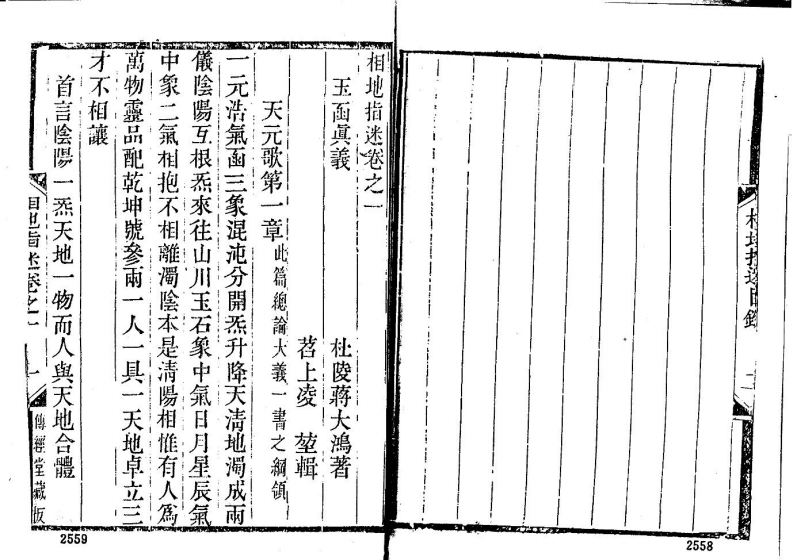 相地指迷卷之一
玉函眞義
杜陵蔣大鴻著
苕上凌 堃輯
天元歌第一章 此篇總論大義一書之綱領
一元浩氣函三象混沌分開炁升降天淸地濁成兩
儀陰陽互根炁來往山川玉石象中氣日月星辰氣
中象二氣相抱不相離濁陰本是淸陽相惟有人爲
萬物靈品配乾坤號參兩一人一具一天地卓立三
才不相讓
首言陰陽一炁天地一物而人與天地合體
相地指迷卷之一
一
傳經堂藏板
2559
相地指迷目錄
2558